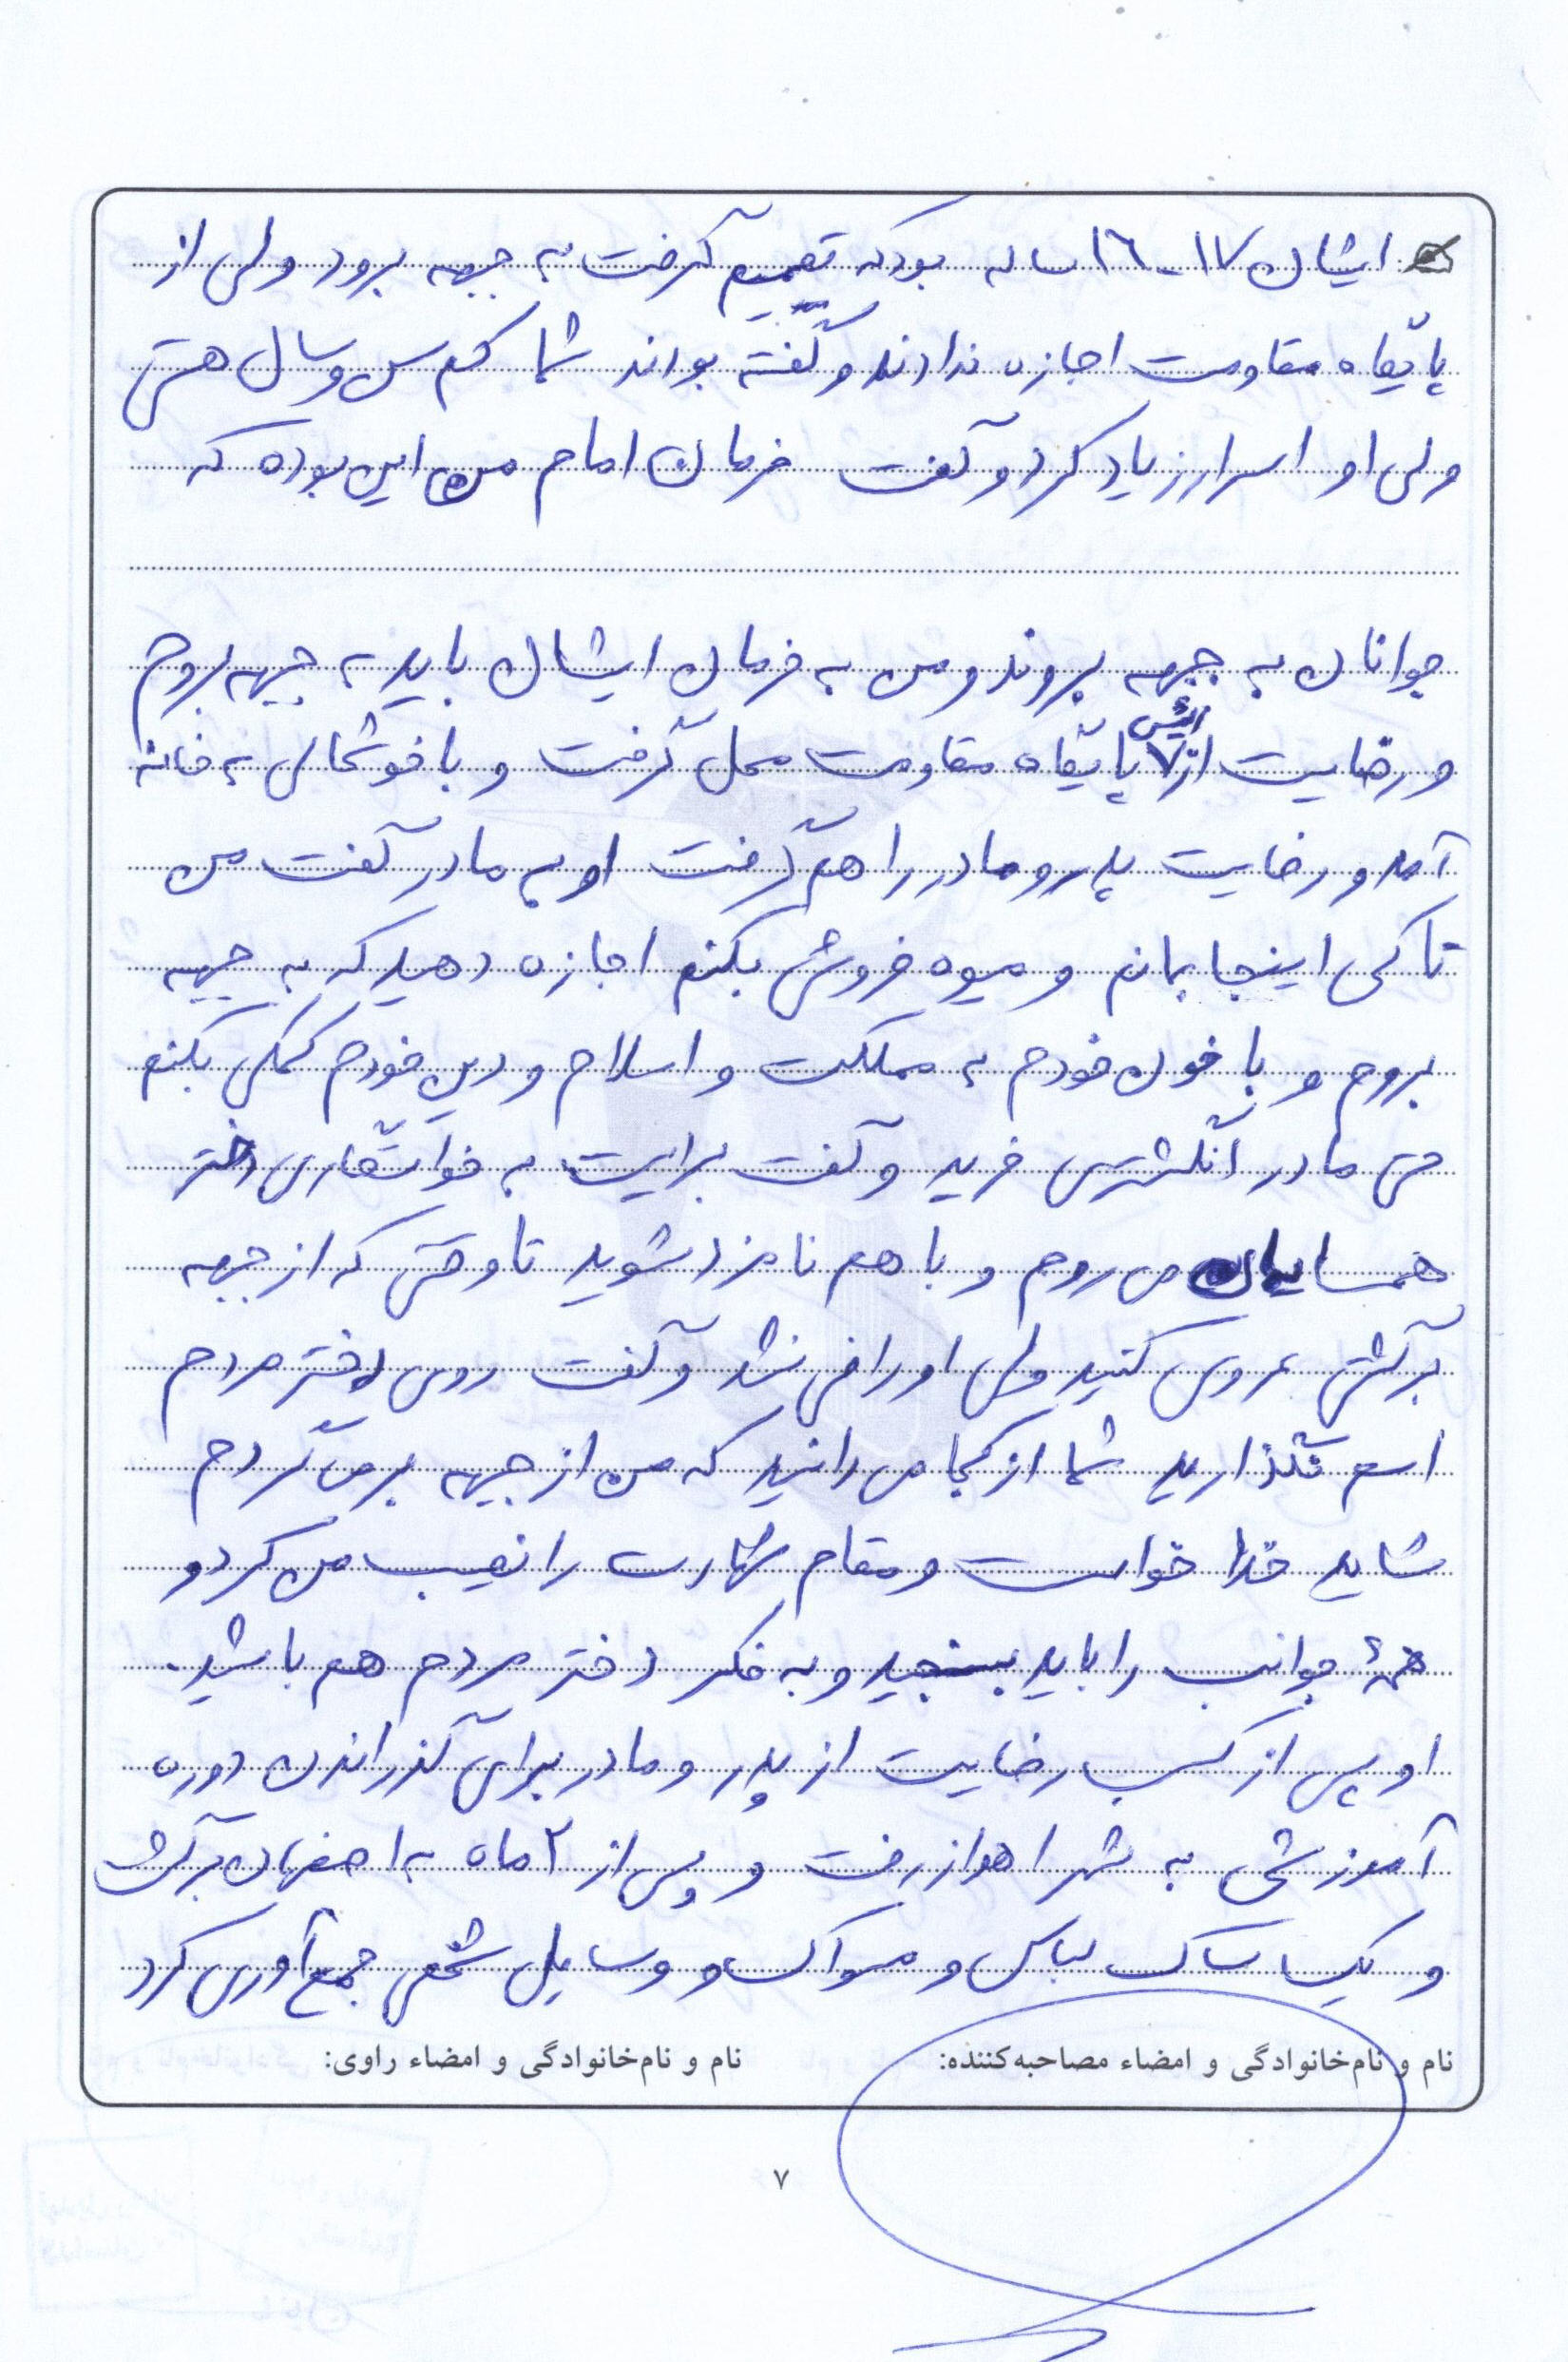 ایشان ١٧-١٦ ساله بود که تصمیم گرفت به جبهه برود ولی از
پایگاه مقاومت اجازه ندادند و گفته بودند شما کم سن و سال هستی
ولی او اسرار زیاد کرد و گفت فرمان امام من این بوده که
جوانان به جبهه بروند و من به فرمان ایشان باید به جبهه بروم
و رضایت از رئیس پایگاه مقاومت محل گرفت و با خوشحالی به خانه
آمد و رضایت پدر و مادر را هم گرفت او به مادر گفت من
تا کی اینجا بمانم و میوه فروشی بکنم اجازه دهید که به جبهه
بروم و با خون خودم به مملکت و اسلام و دین خودم کمکی بکنم
حتی مادر انگشتری خرید و گفت برایت به خواستگاری دختر
همسایمان می روم و با هم نامزد شوید تا وقتی که از جبهه
برگشتی عروسی کنید ولی او راضی نشد و گفت روی دختر مردم
اسم نگذارید شما از کجا می دانید که من از جبهه برمی گردم
شاید خدا خواست و مقام شهادت را نصیب من کرد و
همهٔ جوانب را باید بسنجید و به فکر دختر مردم هم باشید.
او پس از کسب رضایت از پدر و مادر برای گذراندن دوره
آموزشی به شهر اهواز رفت و پس از ٢ ماه به اصفهان برگشت
و یک ساک لباس و مسواک و وسایل شخصی جمع آوری کرد
نام و نام‌خانوادگی و امضاء مصاحبه‌کننده: نام و نام‌خانوادگی و امضاء راوی:
٧